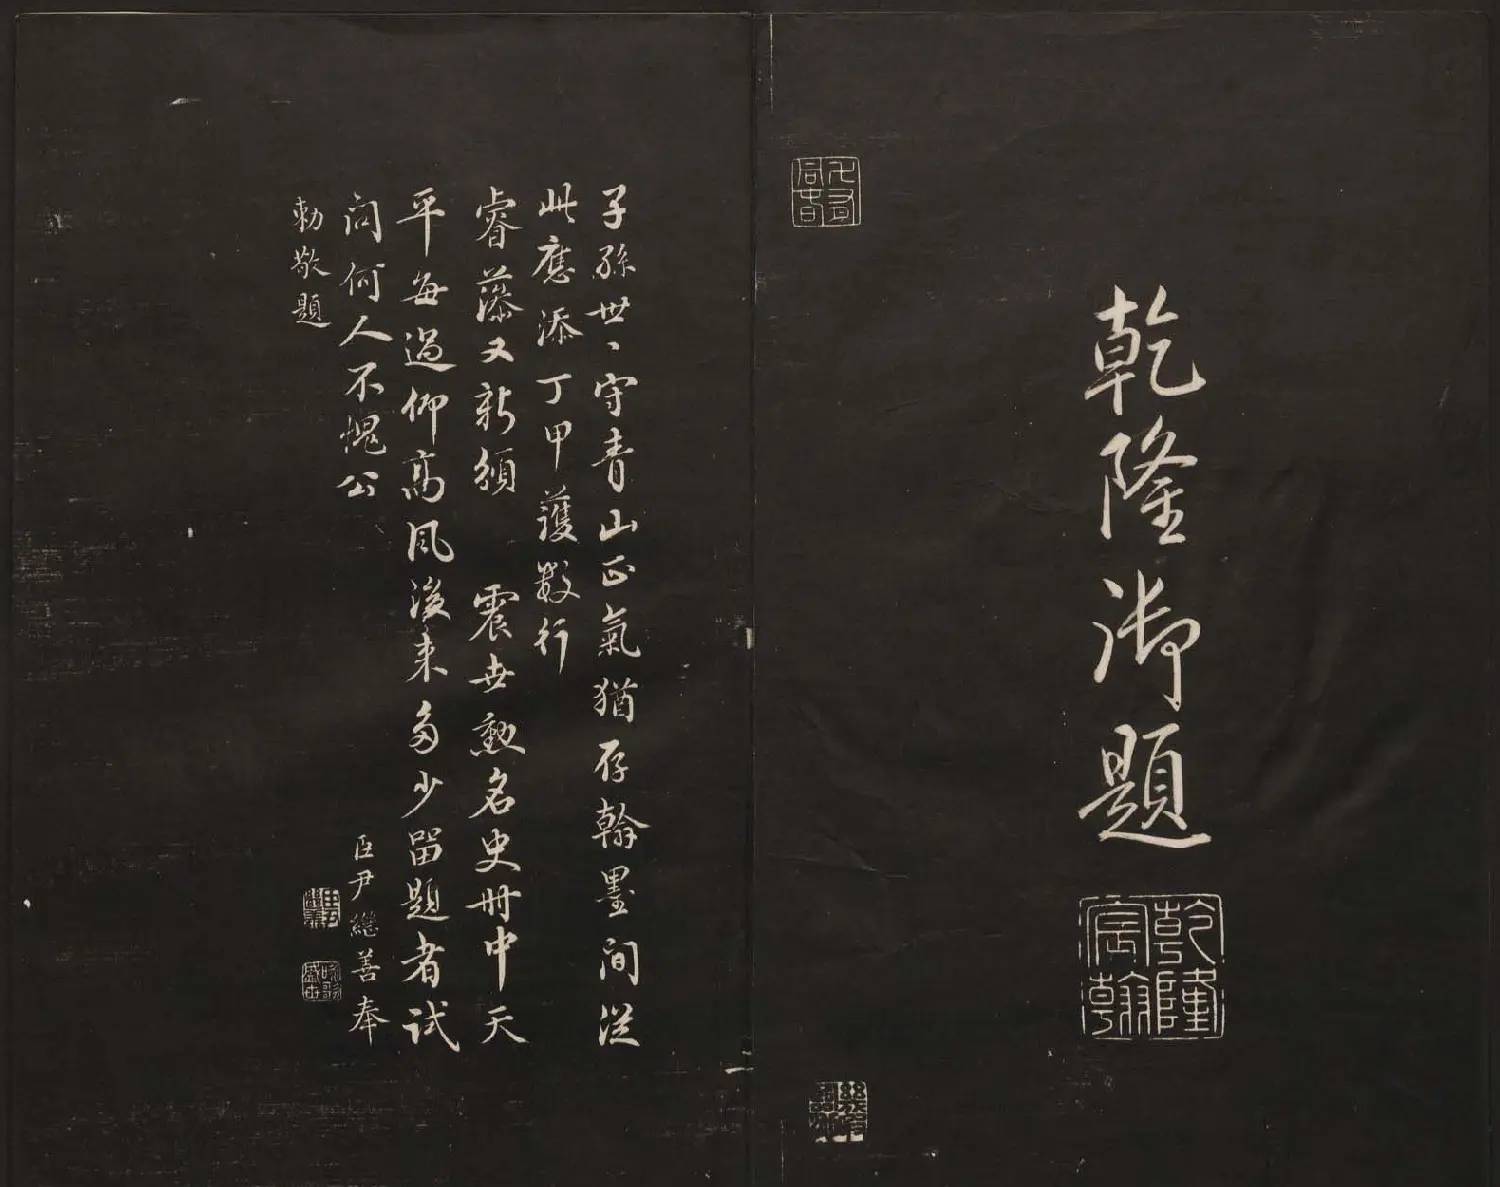 乾隆御題
乾隆宸翰
子孫世〻守青山正氣猶存翰墨間從
此應添丁甲護數行
睿藻又新頒 震世勲名史冊中天
平每過仰高風後來多少留題者試
問何人不愧公 臣尹繼善奉
勅敬題